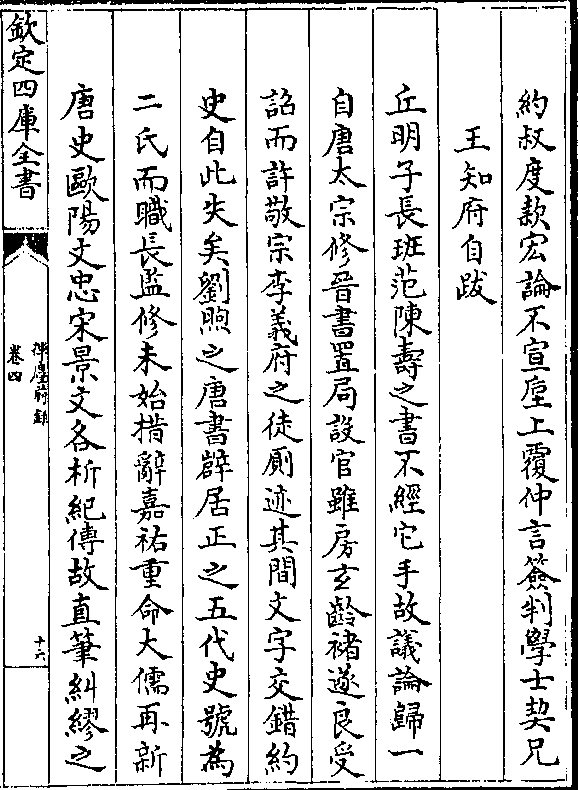 約叔度款宏論不宣垕上覆仲言簽判學士契兄
王知府自跋
丘明子長班范陳壽之書不經它手故議論歸一
自唐太宗修晉書置局設官雖房玄齡褚遂良受
詔而許敬宗李義府之徒厠迹其間文字交錯約
史自此失矣劉煦之唐書薛居正之五代史號為
二氏而職長監修未始措辭嘉祐重命大儒再新
唐史歐陽文忠宋景文各析紀傳故直筆糾繆之
欽定四庫全書
揮麈前錄
卷四
十六